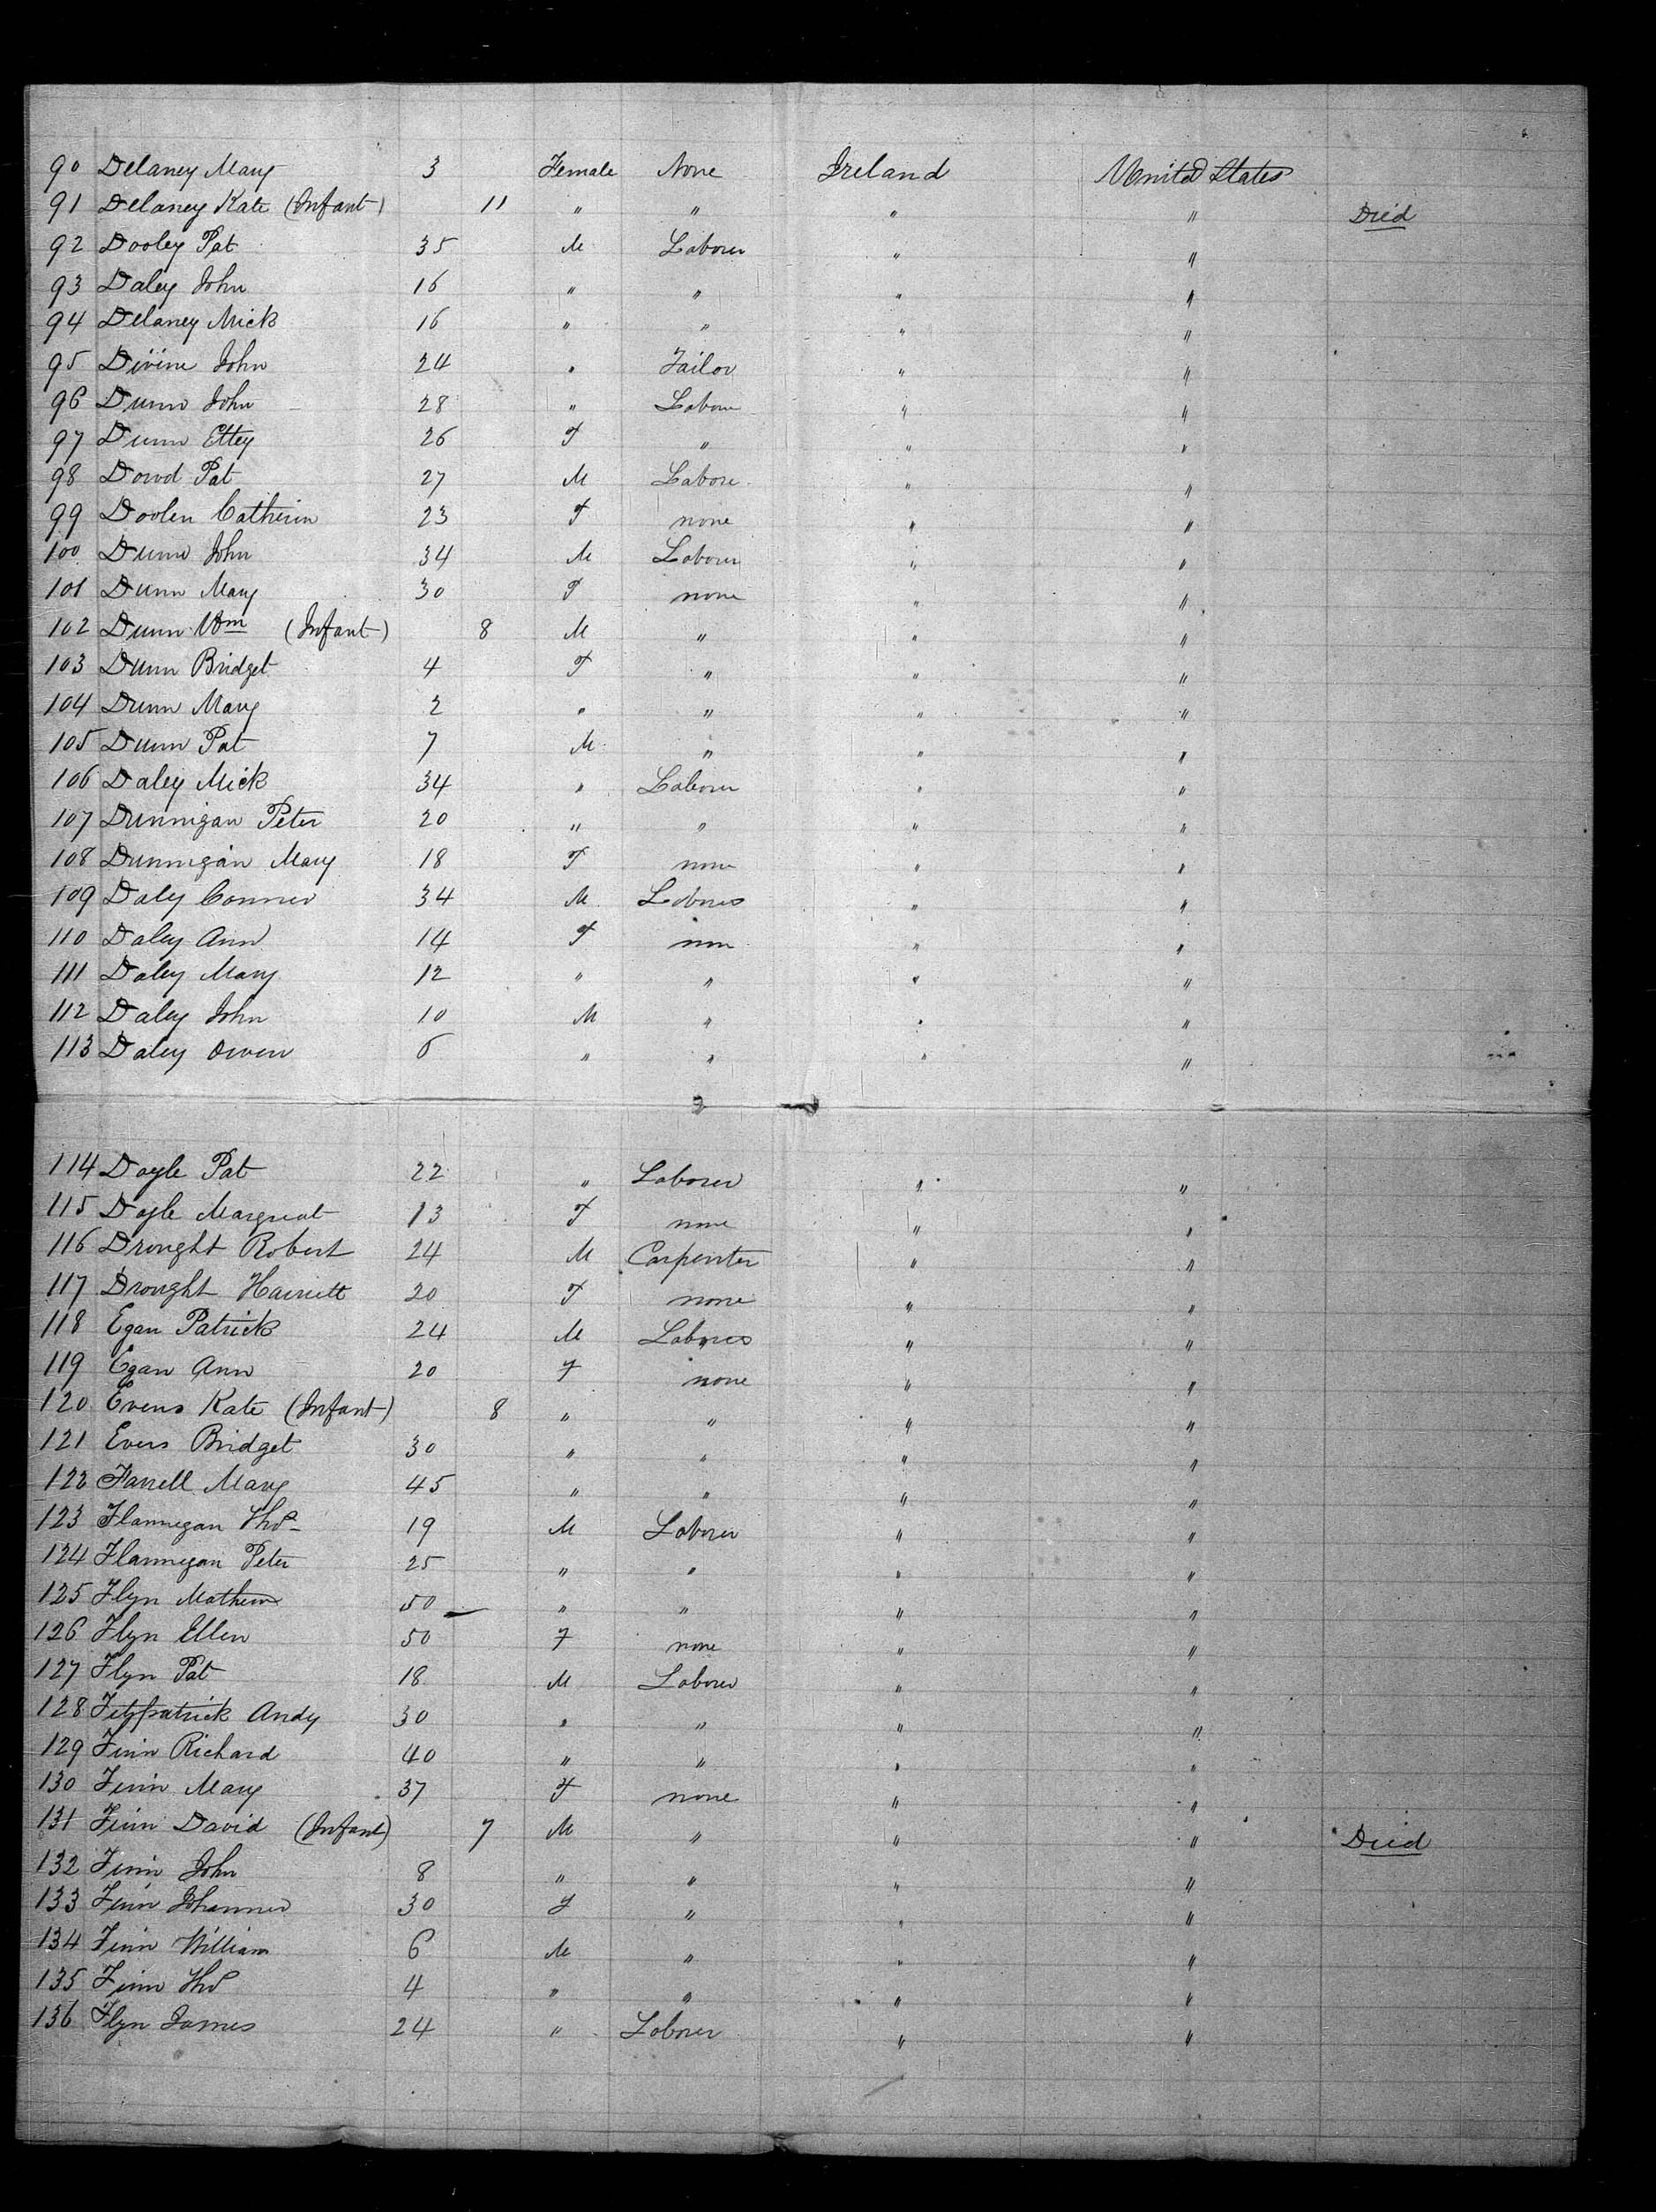 90 Delaney Mary 3 Female None Ireland United States
91 Delaney Kate (Infant) 11 " " " " Died
92 Dooley Pat 35 M Laborer " "
93 Daley John 16 " " " "
94 Delaney Mick 16 " " " "
95 Divine John 24 " Tailor " "
96 Dunn John 28 " Labore " "
97 Dunn Ettey 26 F " " "
98 Dowd Pat 27 M Labore " "
99 Doolen Catherin 23 F none " "
100 Dunn John 34 M Laborer " "
101 Dunn Mary 30 F none " "
102 Dunn Wm (Infant) 8 M " " "
103 Dunn Bridget 4 F " " "
104 Dunn Mary 2 " " " "
105 Dunn Pat 7 M " " "
106 Daley Mick 34 " Laborer " "
107 Dunnigan Peter 20 " " " "
108 Dunnigan Mary 18 F none " "
109 Daly Conner 34 M Laborer " "
110 Daley Ann 14 F non " "
111 Daley Mary 12 " " " "
112 Daley John 10 M " " "
113 Daley Owen 6 " " " "
114 Doyle Pat 22 " Laborer " "
115 Doyle Margreat 13 F none " "
116 Drought Robert 24 M Carpenter " "
117 Drought Harriett 20 F none " "
118 Egan Patrick 24 M Laborer " "
119 Egan Ann 20 F none " "
120 Evens Kate (Infant) 8 " " " "
121 Evers Bridget 30 " " " "
122 Farrell Mary 45 " " " "
123 Flannegan Thos 19 M Laborer " "
124 Flannegan Peter 25 " " " "
125 Flyn Mathew 50 " " " "
126 Flyn Ellen 50 F none " "
127 Flyn Pat 18 M Laborer " "
128 Fitzpatrick Andy 30 " " " "
129 Finn Richard 40 " " " "
130 Finn Mary 37 F none " "
131 Finn David (Infant) 7 M " " " Died
132 Finn John 8 " " " "
133 Finn Johanner 30 F " " "
134 Finn William 6 M " " "
135 Finn Thos 4 " " " "
136 Flyn James 24 " Laborer " "